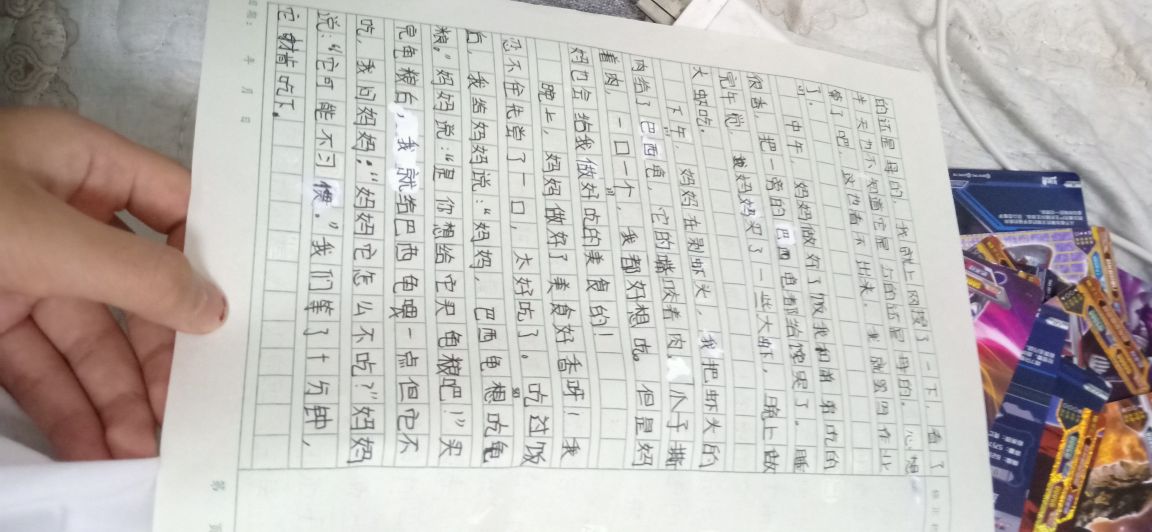 的还是母的。我就上网搜了一下,看了
半天也不知道它是公的还是母的。心想
算了吧,这也看不出来。我就写作业
了。
中午,妈妈做好了饭我和弟弟吃的
很香,把一旁的巴西龟都给馋哭了。睡
完午觉,妈妈买了一些大虾,晚上做
大虾吃。
下午,妈妈在剥虾头,我把虾头的
肉给了巴西龟,它的嘴咬着肉,爪子撕
着肉,一口一个,我都好想吃。但是妈
妈也会给我做好吃的美食的!
晚上,妈妈做好了美食好香呀!我
忍不住先尝了一口,太好吃了。吃过饭
后,我给妈妈说:“妈妈,巴西龟想吃龟
粮。”妈妈说:“是你想给它买龟粮吧!”买
完龟粮后,我就给巴西龟喂一点但它不
吃,我问妈妈:“妈妈它怎么不吃?”妈妈
说:“它可能不习惯。”我们等了十分钟,
它才肯吃下。
年 月 日
第 页